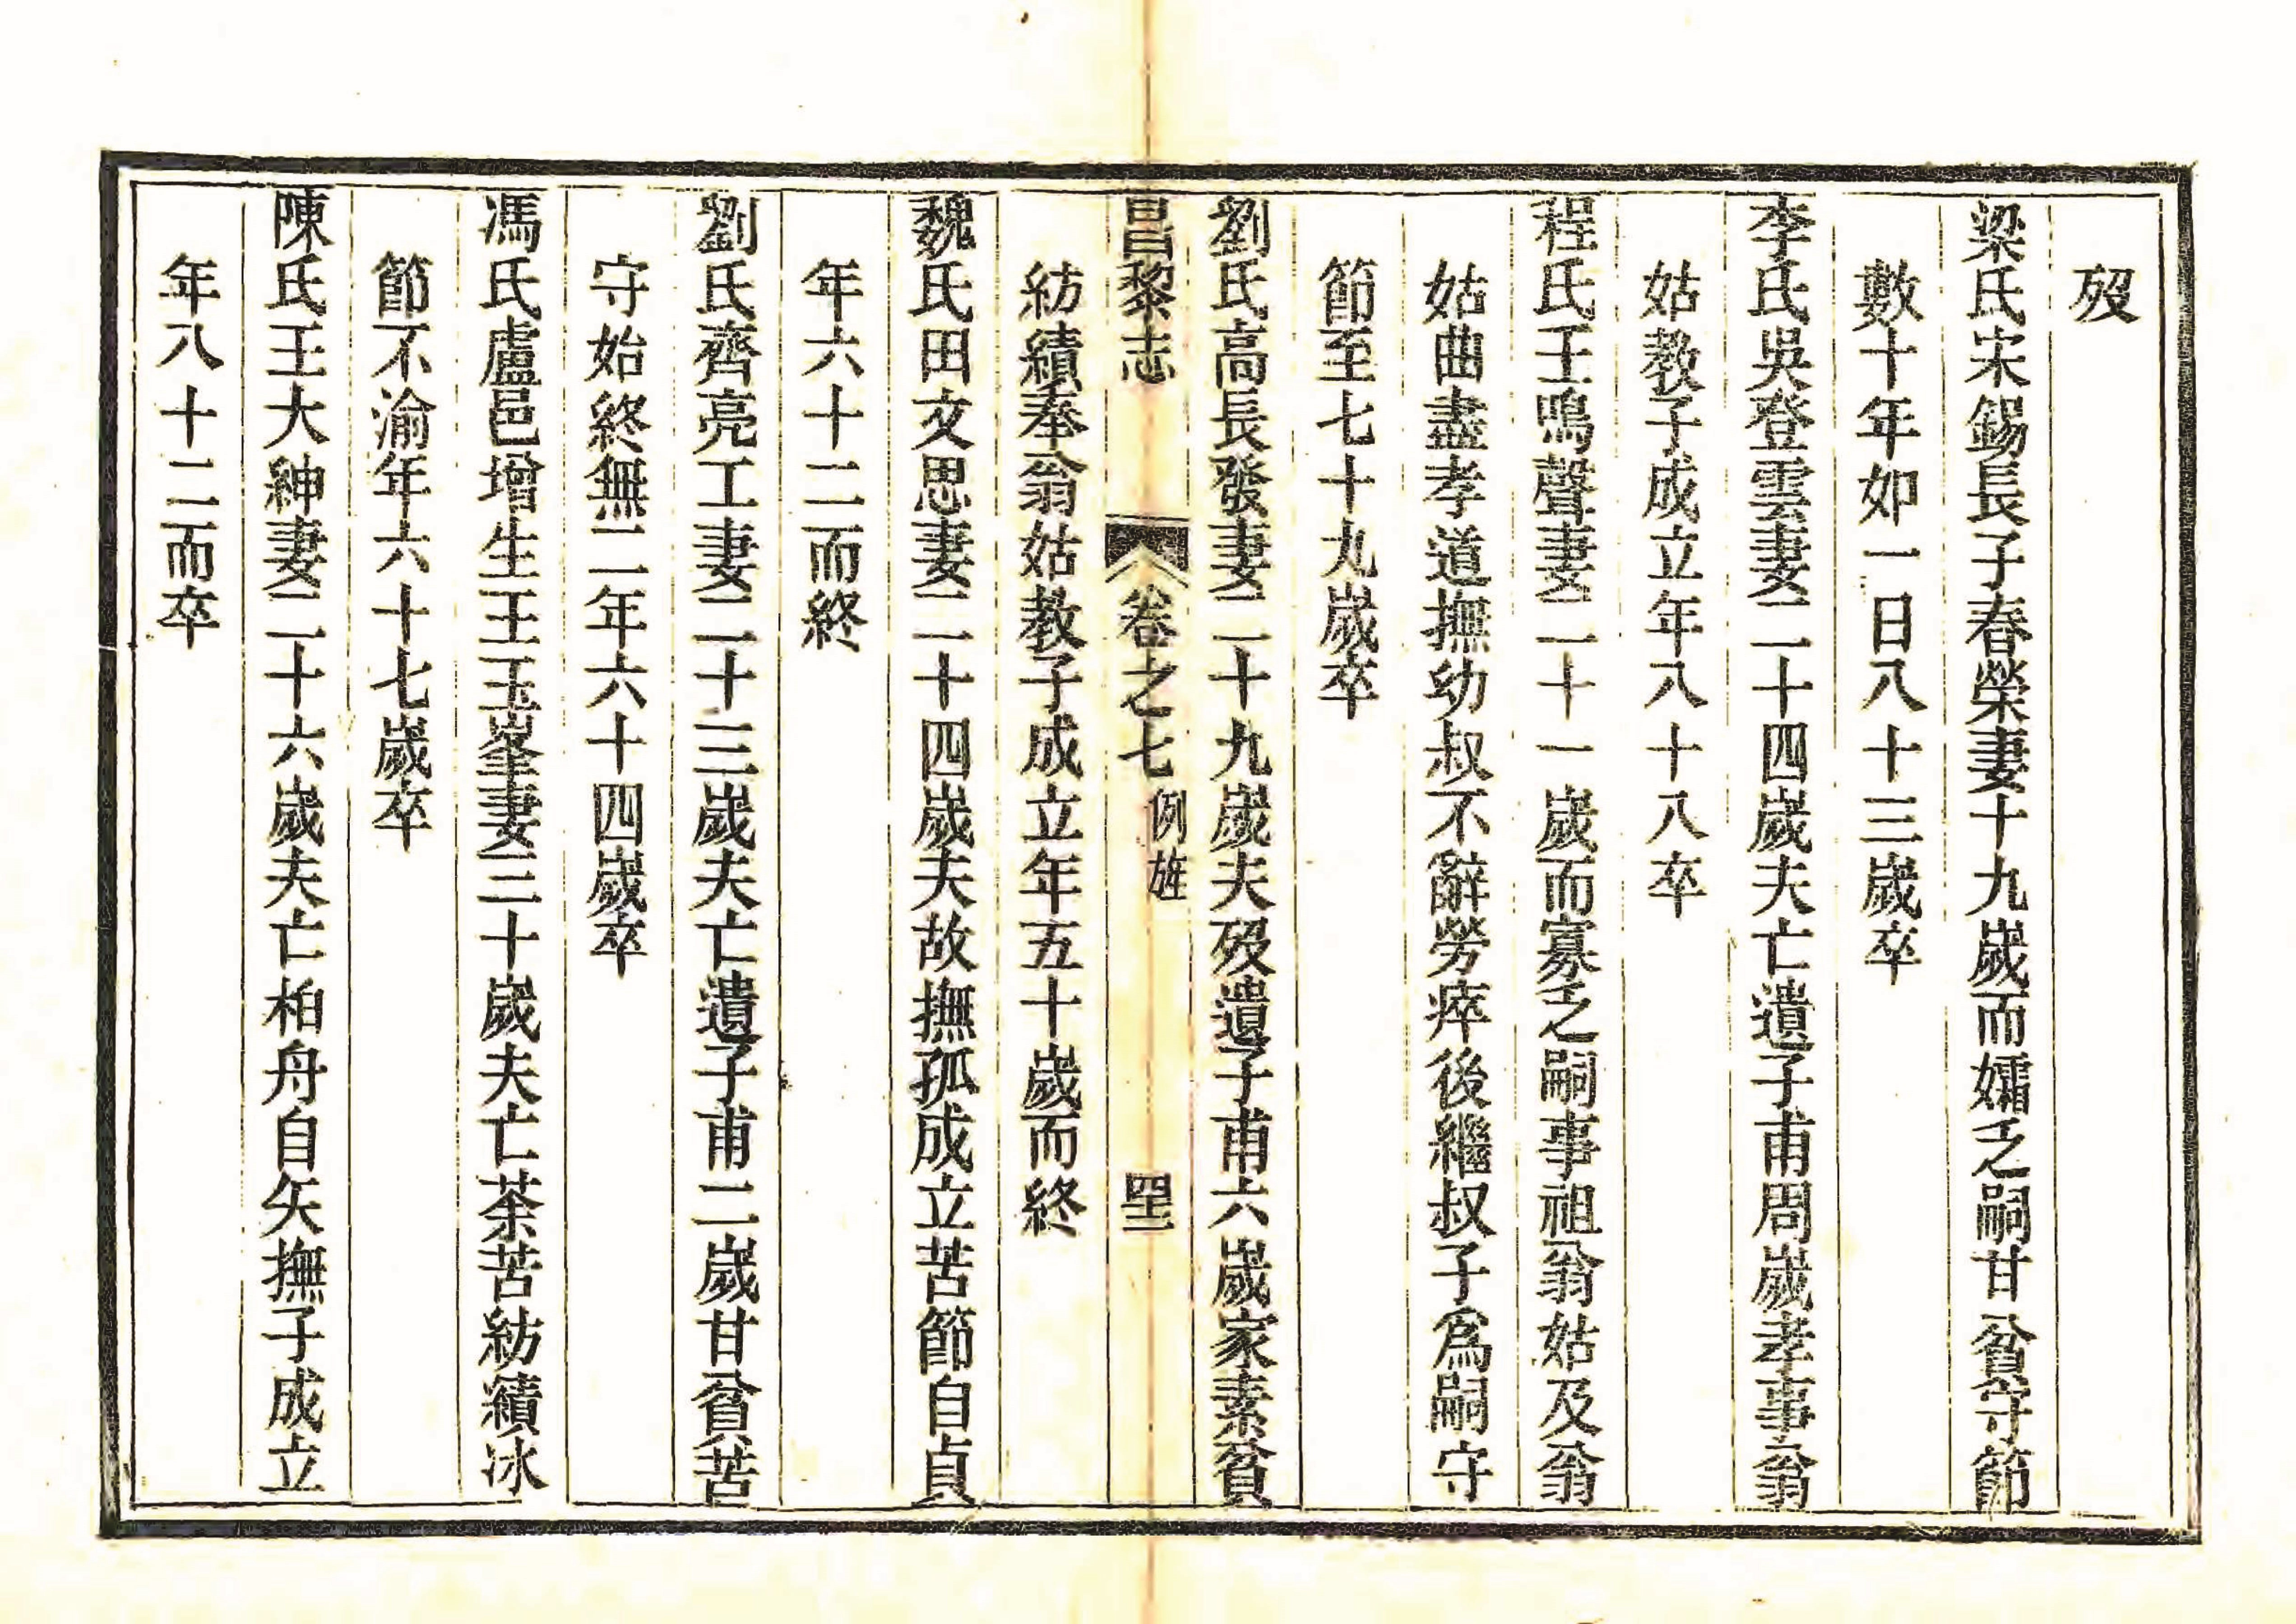 歿
梁氏宋錫長子春榮妻十九歲而孀乏嗣甘貧守節
數十年如一日八十三歲卒
李氏吳登雲妻二十四歲夫亡遺子甫周歲孝事翁
姑教子成立年八十八卒
程氏王鳴聲妻二十一歲而寡乏嗣事祖翁姑及翁
姑曲盡孝道撫幼叔不辭勞瘁後繼叔子爲嗣守
節至七十九歲卒
劉氏高長發妻二十九歲夫歿遺子甫六歲家素貧
昌黎志 卷之七 例旌 四十三
紡績奉翁姑教子成立年五十歲而終
魏氏田文思妻二十四歲夫故撫孤成立苦節自貞
年六十二而終
劉氏齊亮工妻二十三歲夫亡遺子甫二歲甘貧苦
守始終無二年六十四歲卒
馮氏盧邑增生王玉峯妻三十歲夫亡荼苦紡績冰
節不渝年六十七歲卒
陳氏王大紳妻二十六歲夫亡柏舟自矢撫子成立
年八十二而卒